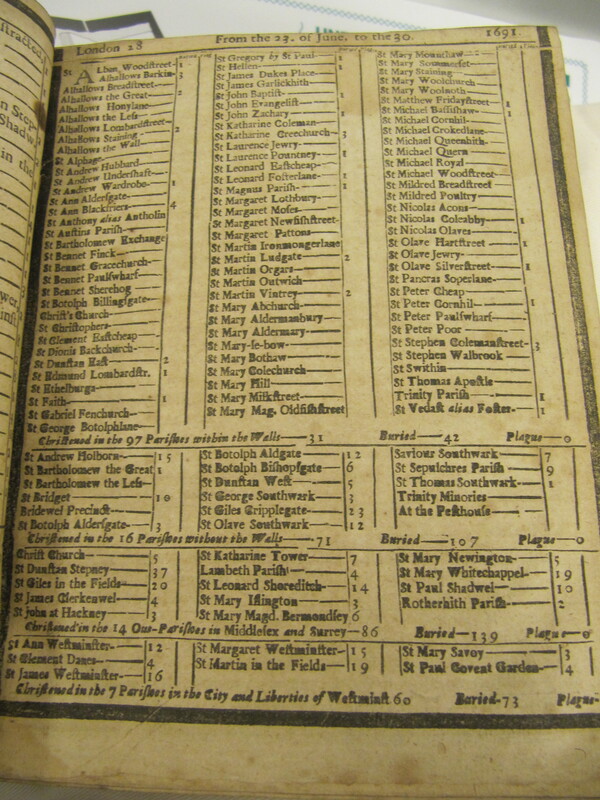 London 28 From the 23. of June. to the 30. 1691
St Alban Woodstreet— 1
Alhallows Barkin— 3
Alhallows Breadstreet—
Alhallows the Great— 2
Alhallows Honylane—
Alhallows the Less—
Alhallows Lombardstreet 2
Alhallows Staining—
Alhallows the Wall—
St Alphage—
St Andrew Hubbard—
St Andrew Undershaft—
St Andrew Wardrobe— 1
St Ann Aldersgate—
St Ann Blackfriers— 4
St Anthony alias Antholin
St Austins Parish—
St Bartholomew Exchange
St Bennet Finck—
St Bennet Gracechurch—
St Bennet Paulswharf—
St Bennet Sherehog
St Botolph Billingsgate—
Christ's Church—
St Christophers—
St Clement Eastcheap—
St Dionis Backchurch—
St Dunstan East— 2
St Edmund Lombardstr. 1
St Ethelburga—
St Faith— 1
St Gabriel Fenchurch—
St George Botolphlane—
St Gregory by St Paul— 1
St Hellen— 1
St James Dukes Place—
St James Garlickhith—
St John Baptist— 1
St John Evangelist—
St John Zachary— 1
St Katharine Coleman—
St Katharine Creechurch— 3
St Laurence Jewry—
St Laurence Pountney— 1
St Leonard Eastcheap—
St Leonard Fosterlane— 1
St Magnus Parish— 1
St Margaret Lothbury—
St Margaret Moses—
St Margaret Newfishstreet-
St Margaret Pattons—
St Martin Ironmongerlane
St Martin Ludgate— 2
St Martin Orgars—
St Martin Outwich—
St Martin Vintrey— 2
St Mary Abchurch—
St Mary Aldermanbury—
St Mary Aldermary—
St Mary-le-bow—
St Mary Bothaw—
St Mary Colechurch—
St Mary Hill—
St Mary Milkstreet—
St Mary Mag. Oldfishstreet
St Mary Mounthaw—
St Mary Sommerset—
St Mary Staining—
St Mary Woolchurch—
St Mary Woolnoth—
St Matthew Fridaystreet— 1
St Michael Bassishaw— 1
St Michael Cornhil—
St Michael Crokedlane—
St Michael Queenhith—
St Michael Quern—
St Michael Royal—
St Michael Woodstreet—
St Mildred Breadstreet—
St Mildred Poultry—
St Nicolas Acons—
St Nicolas Coleabby— 1
St Nicolas Olaves—
St Olave Hartstreet— 1
St Olave Jewry—
St Olave Silverstreet— 1
St Pancras Soperlane—
St Peter Cheap—
St Peter Cornhil— 1
St Peter Paulswharf—
St Peter Poor—
St Stephen Colemanstreet— 3
St Stephen Walbrook
St Swithin—
St Thomas Apostle—
Trinity Parish— 1
St Vedast alias Foster— 1
Christened in the 97 Parishes within the Walls— 31 Buried— 42 Plague— 0
St Andrew Holborn— 15
St Bartholomew the Great 1
St Bartholomew the Less—
St Bridget— 10
Bridewel Precinct—
St Botolph Aldersgate— 3
St Botolph Aldgate— 12
St Botolph Bishopsgate— 6
St Dunstan West— 5
St George Southwark— 3
St Giles Cripplegate— 23
St Olave Southwark— 12
Saviour Southwark— 7
St Sepulchres Parish— 9
St Thomas Southwark— 1
Trinity Minories—
At the Pesthouse—
Christened in the 16 Parishes without the Walls— 71 Buried— 107 Plague— 0
Christ Church— 5
St Dunstan Stepney— 37
St Giles in the Fields— 20
St James Clerkenwel— 4
St John at Hackney— 3
St Katharine Tower— 7
Lambeth Parish— 4
St Leonard Shoreditch— 14
St Mary Islington— 3
St Mary Magd. Bermondsey 6
St Mary Newington— 5
St Mary Whitechappel— 19
St Paul Shadwel— 10
Rotherhith Parish— 2
Christened in the 14 Out-Parishes in Middlesex and Surrey— 86 Buried— 139 Plague— 0
St Ann Westminster— 12
St Clement Danes— 4
St James Westminster— 16
St Margaret Westminster— 15
St Martin in the Fields— 19
St Mary Savoy— 3
St Paul Covent Garden— 4
Christened in the 7 Parishes in the City and Liberties of Westminst 60 Buried- 73 Plague-